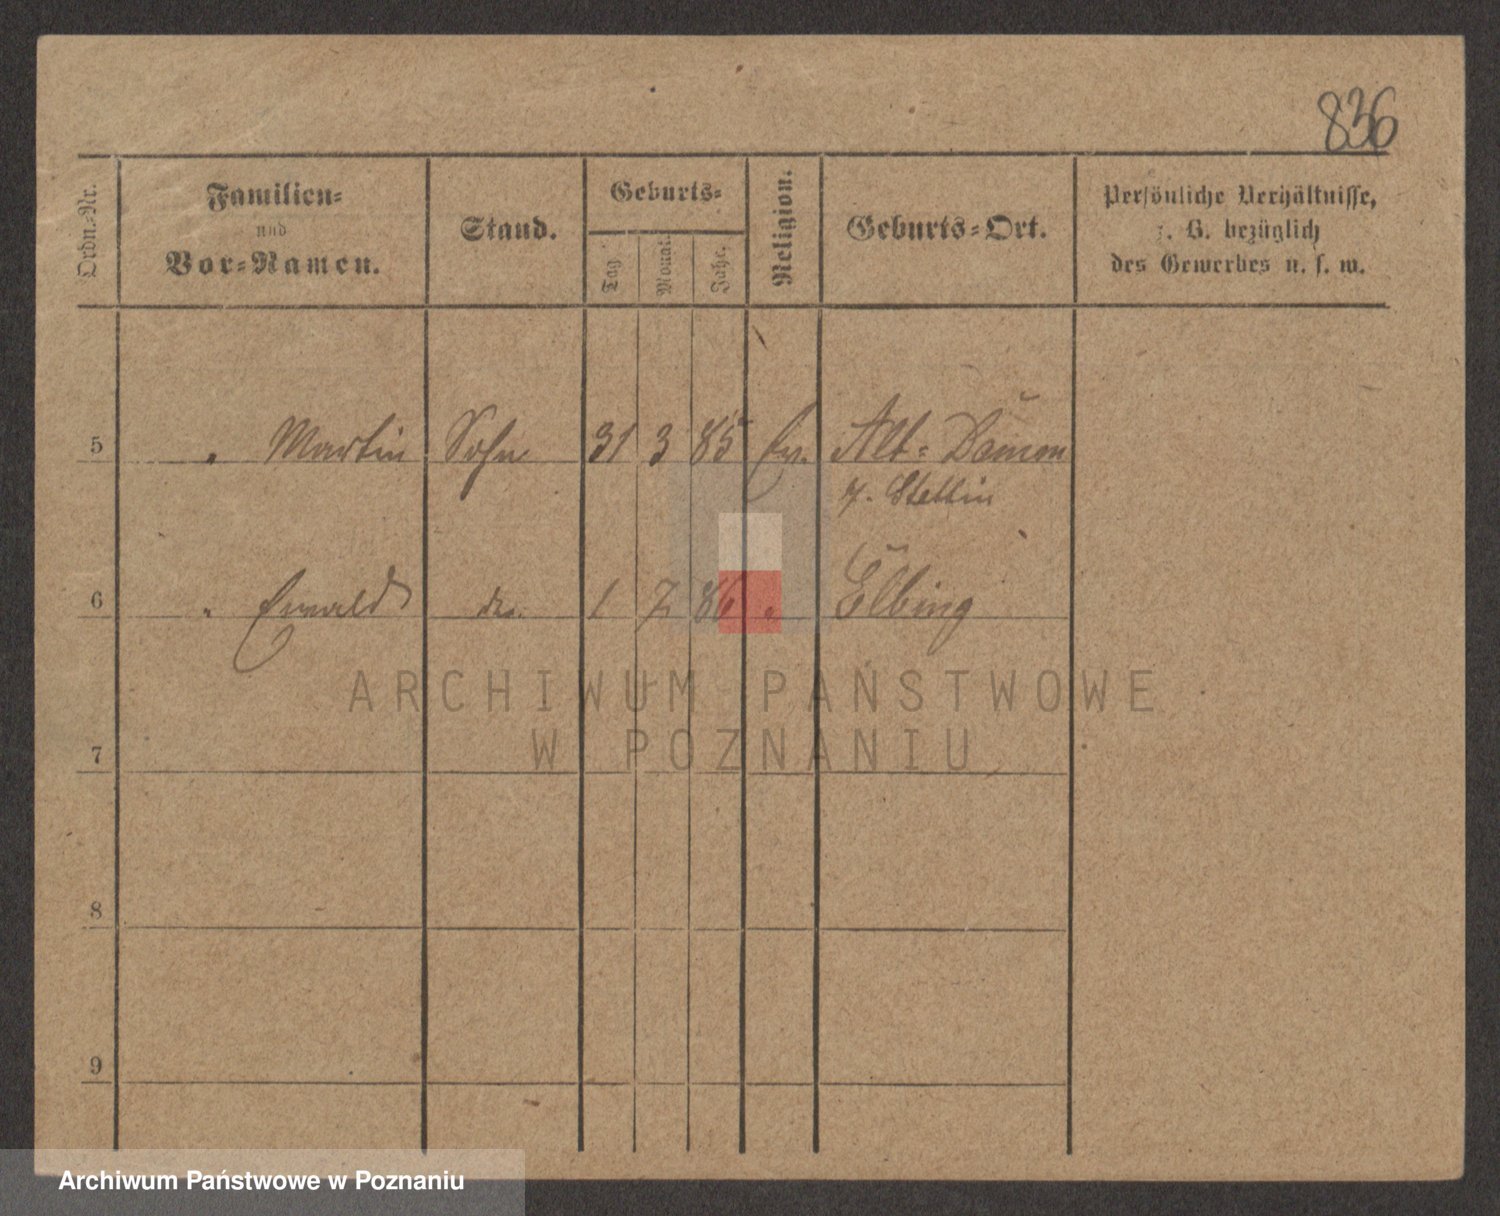 836
Ordn.-Nr.
Familien-
und
Vor-Namen.
Stand.
Geburts-
Tag.
Monat.
Jahr.
Religion.
Geburts-Ort.
Persönliche Verhältnisse,
z. B. bezüglich
des Gewerbes u. s. w.
5 " Martin Sohn 31 3 85 Ev. Alt-Damm
b. Stettin
6 " Ewald do. 1 7 86 " Elbing
7
8
9
ARCHIWUM PAŃSTWOWE
W POZNANIU
Archiwum Państwowe w Poznaniu